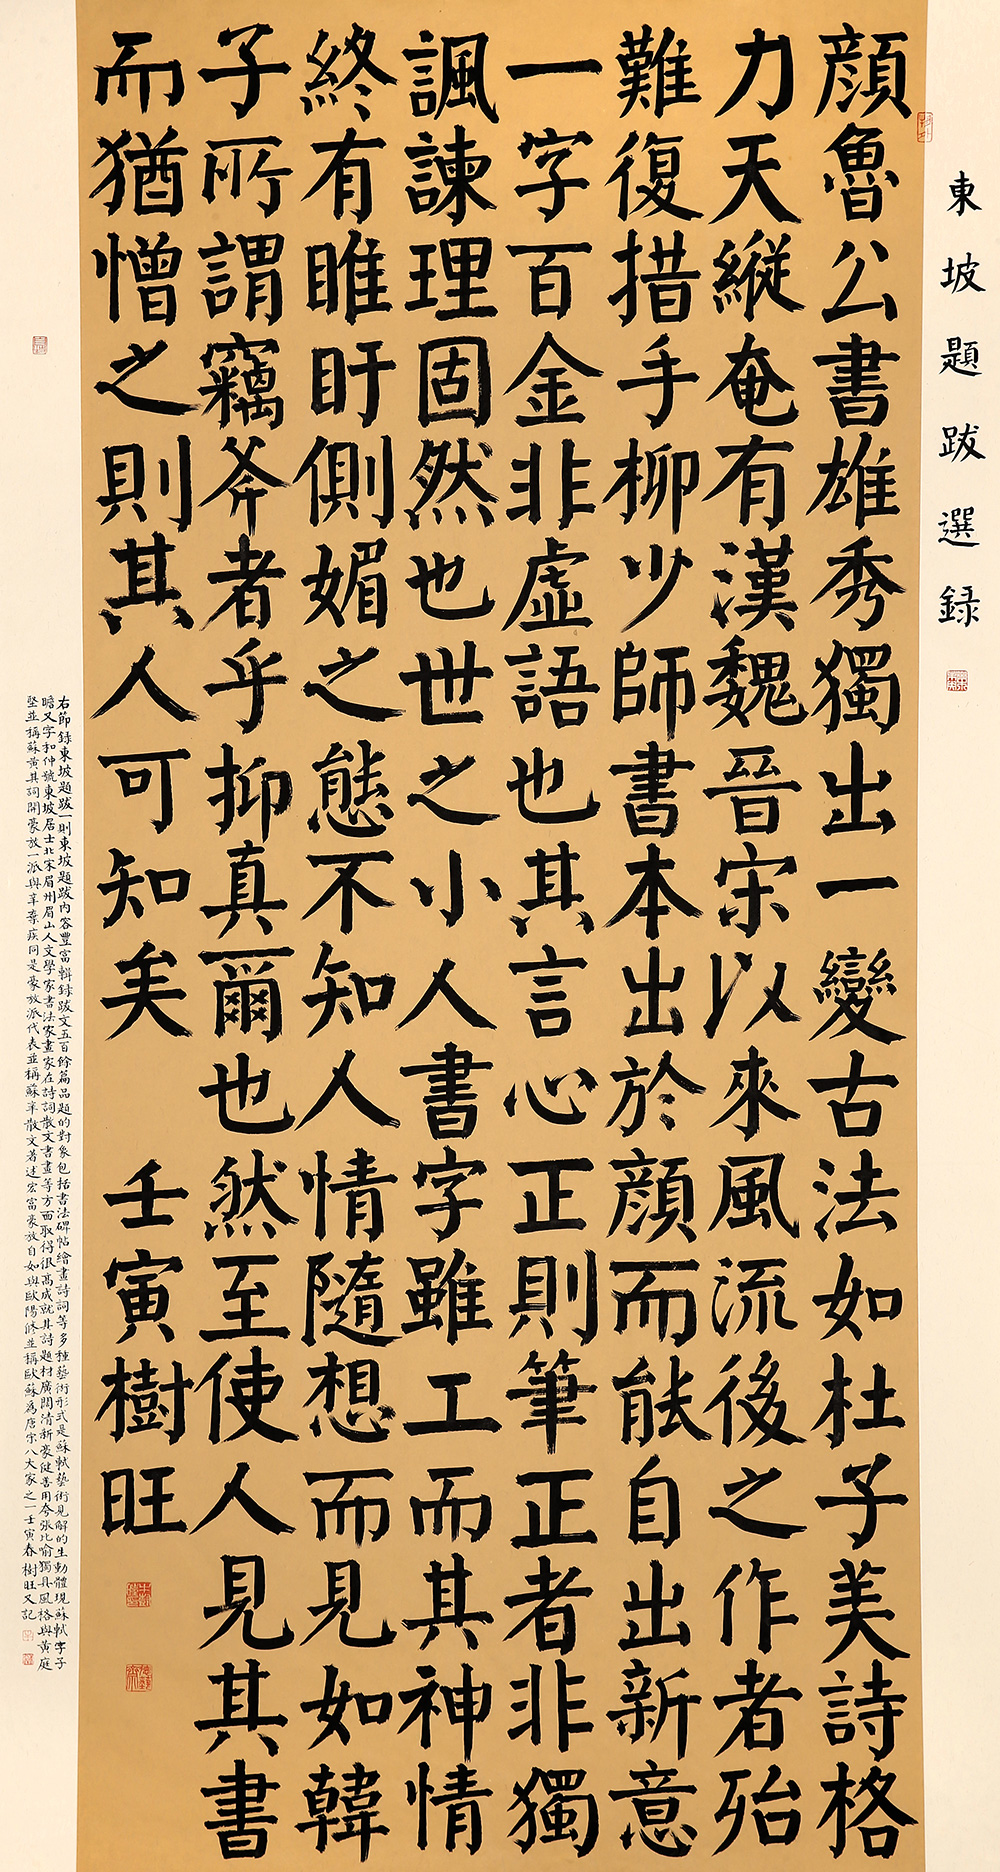 東坡題跋選録
顔魯公書雄秀獨出一變古法如杜子美詩格
力天縱奄有漢魏晉宋以來風流後之作者殆
難復措手柳少師書本出於顔而能自出新意
一字百金非虛語也其言心正則筆正者非獨
諷諫理固然也世之小人書字雖工而其神情
終有睢盱側媚之態不知人情隨想而見如韓
子所謂竊斧者乎抑真爾也然至使人見其書
而猶憎之則其人可知矣 壬寅樹旺
右節録東坡題跋一則東坡題跋内容豐富輯録跋文五百餘篇品題的對象包括書法碑帖繪畫詩詞等多種藝術形式是蘇軾藝術見解的生動體現蘇軾字子
瞻又字和仲號東坡居士北宋眉州眉山人文學家書法家畫家在詩詞散文書畫等方面取得很高成就其詩題材廣闊清新豪健善用夸張比喻獨具風格與黄庭
堅並稱蘇黄其詞開豪放一派與辛棄疾同是豪放派代表並稱蘇辛散文著述宏富豪放自如與歐陽修並稱歐蘇爲唐宋八大家之一壬寅春樹旺又記